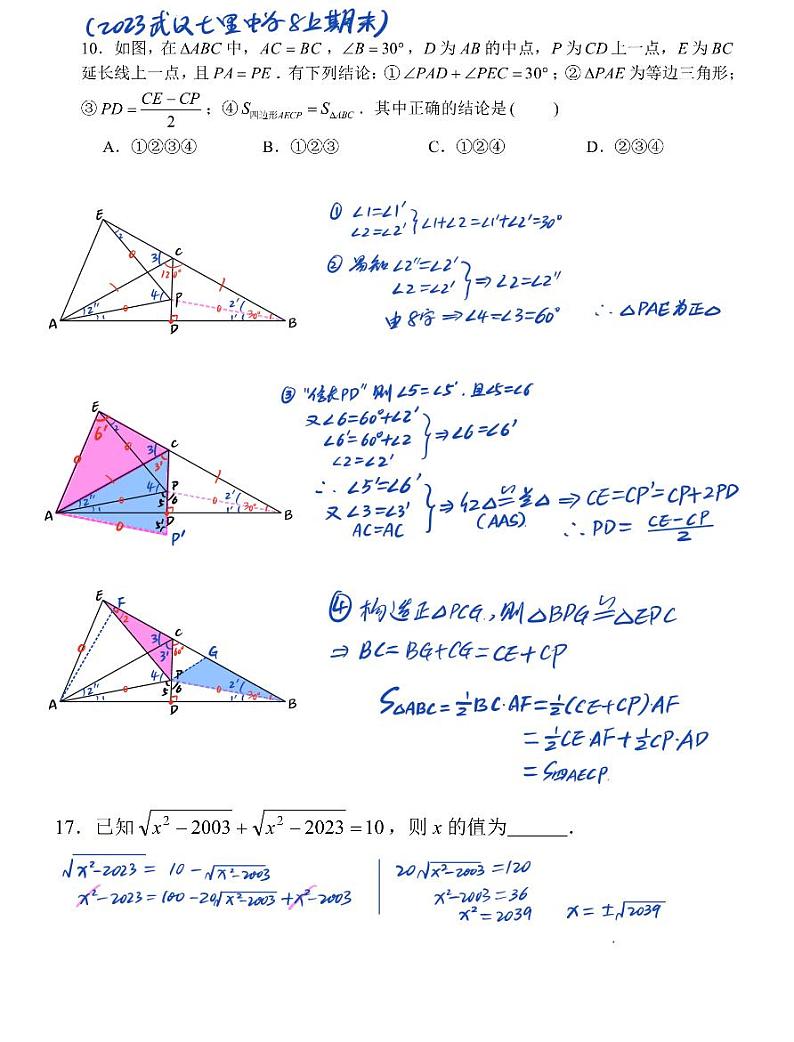 (2023武汉七里中学8上期末)
10．如图，在 ΔABC 中，AC = BC，∠B = 30°，D 为 AB 的中点，P 为 CD 上一点，E 为 BC
延长线上一点，且 PA = PE．有下列结论：①∠PAD + ∠PEC = 30°；② ΔPAE 为等边三角形；
③ PD = (CE − CP)/2；④ S四边形AECP = SΔABC．其中正确的结论是（　　）
A．①②③④　B．①②③　C．①②④　D．②③④
① ∠1=∠1′
∠2=∠2′ } ∠1+∠2=∠1′+∠2′=30°
② 易知∠2″=∠2′
∠2=∠2′ } ⇒ ∠2=∠2″
由8字 ⇒ ∠4=∠3=60° ∴ △PAE为正△
E
2
3
C
120°
4
P
2″
1
2′
1′
30°
A
D
B
③ "倍长PD" 则∠5=∠5′. 且∠5=∠6
又∠6=60°+∠2′
∠6′=60°+∠2
∠2=∠2′ } ⇒ ∠6=∠6′
∴ ∠5′=∠6′
又∠3=∠3′
AC=AC } ⇒ 红△≌蓝△ (AAS) ⇒ CE=CP′=CP+2PD
∴ PD = (CE−CP)/2
E
6′
2
3
C
3′
4
P
6
5
2″
1
2′
1′
30°
A
D
B
5′
P′
④ 构造正△PCG, 则△BPG≌△EPC
⇒ BC=BG+CG=CE+CP
S△ABC=½BC·AF=½(CE+CP)·AF
=½CE·AF+½CP·AD
=S四AECP.
E
F
2
3
C
60°
3′
G
4
P
6
5
2″
1
2′
1′
30°
A
D
B
17．已知 √(x²−2003) + √(x²−2023) = 10，则 x 的值为______．
√(x²−2023) = 10 − √(x²−2003)
x²−2023 = 100−20√(x²−2003) + x²−2003
20√(x²−2003) = 120
x²−2003 = 36
x² = 2039 x = ±√2039